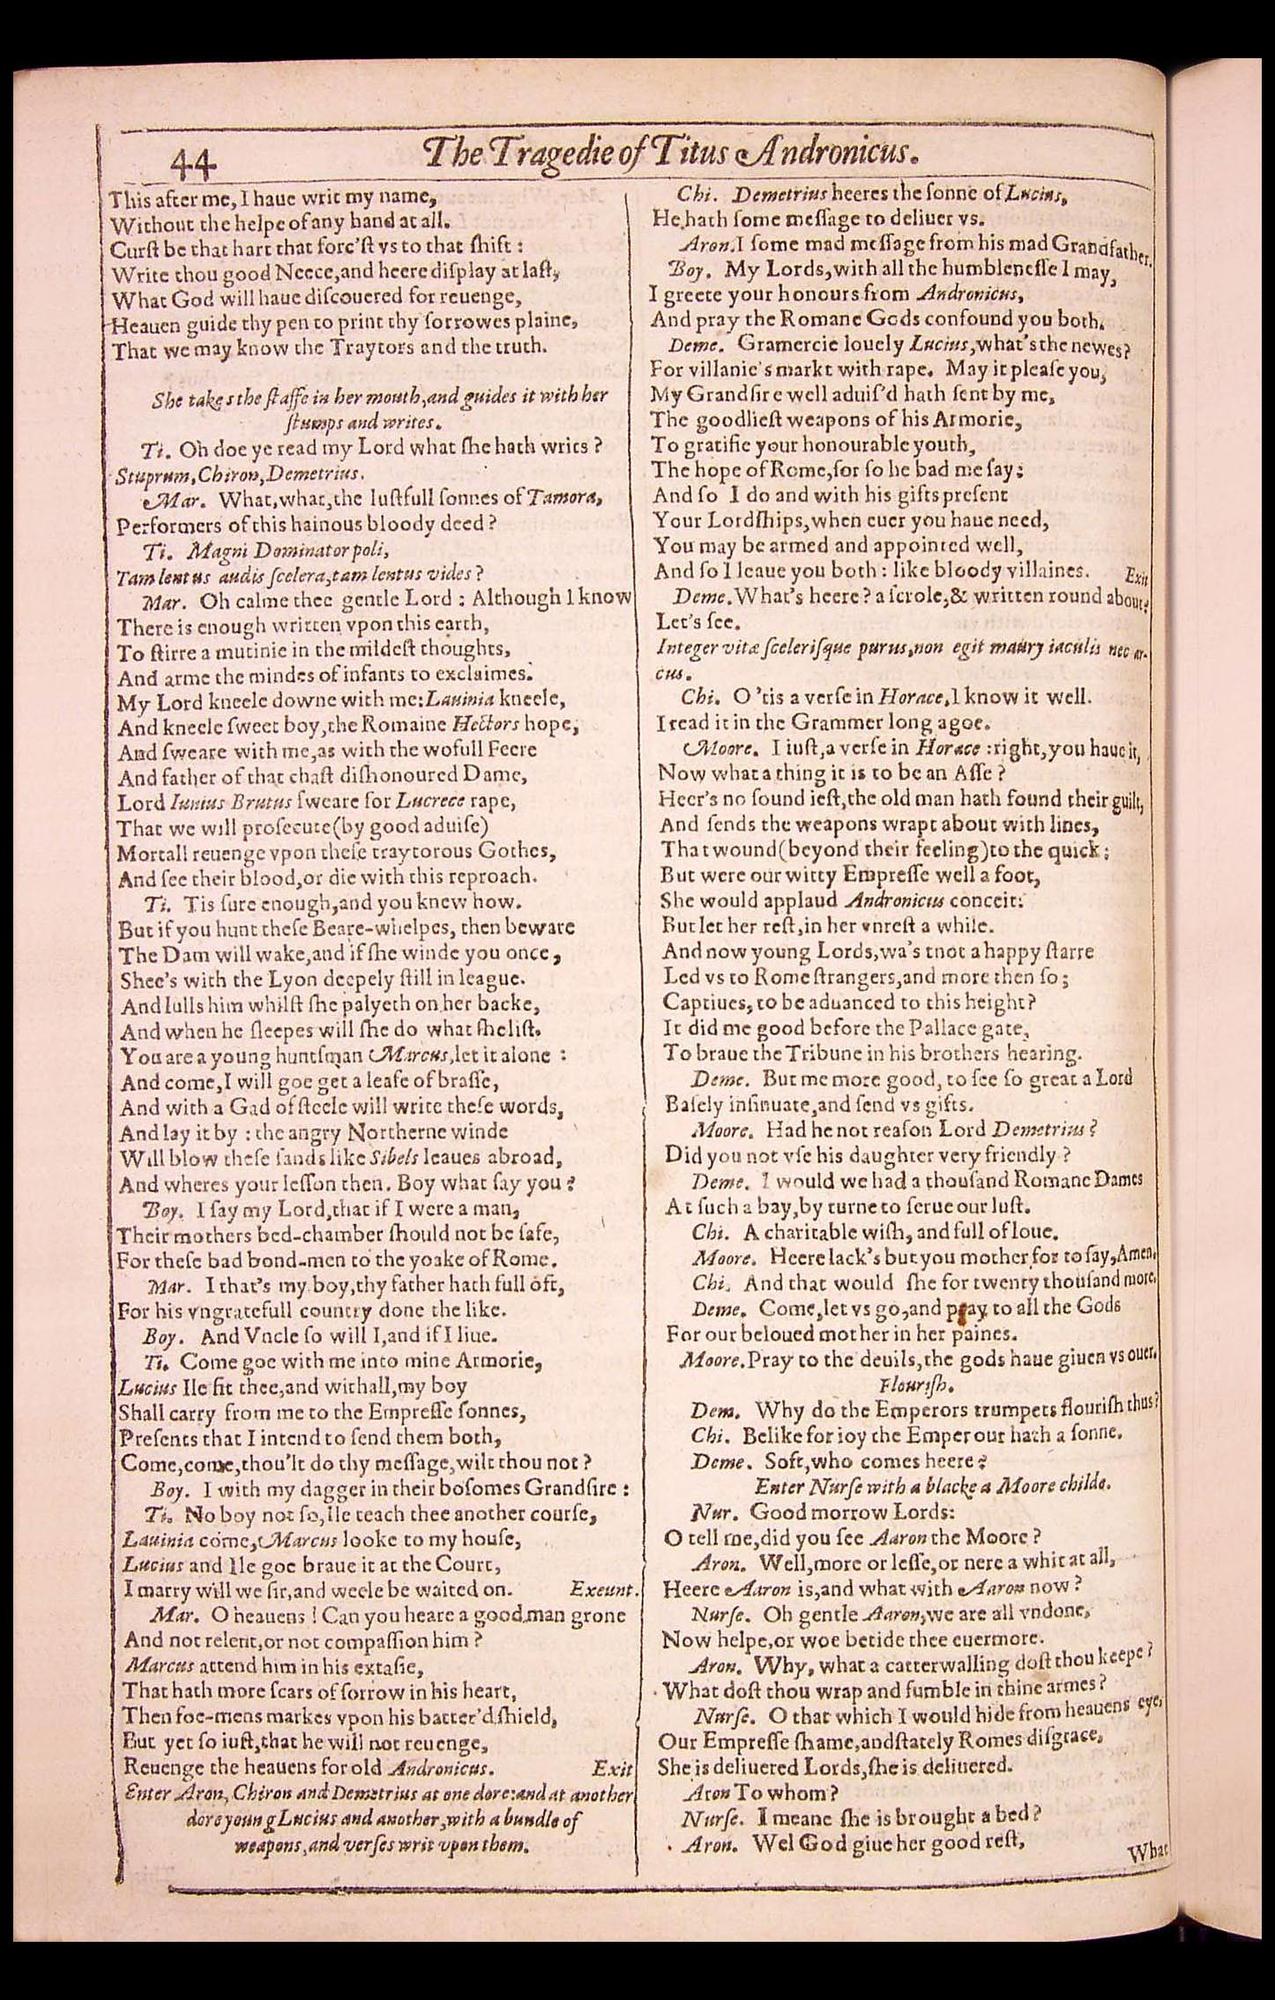 44
The Tragedie of Titus Andronicus.
This after me, I haue writ my name,
Without the helpe of any hand at all.
Curſt be that hart that forc'ſt vs to that ſhift:
Write thou good Neece, and heere diſplay at laſt,
What God will haue diſcouered for reuenge,
Heauen guide thy pen to print thy ſorrowes plaine,
That we may know the Traytors and the truth.
She takes the ſtaffe in her mouth, and guides it with her
ſtumps and writes.
Ti. Oh doe ye read my Lord what ſhe hath writs?
Stuprum, Chiron, Demetrius.
Mar. What, what, the luſtfull ſonnes of Tamora,
Performers of this hainous bloody deed?
Ti. Magni Dominator poli,
Tam lentus audis ſcelera, tam lentus vides?
Mar. Oh calme thee gentle Lord: Although I know
There is enough written vpon this earth,
To ſtirre a mutinie in the mildeſt thoughts,
And arme the mindes of infants to exclaimes.
My Lord kneele downe with me: Lauinia kneele,
And kneele ſweet boy, the Romaine Hectors hope,
And ſweare with me, as with the wofull Feere
And father of that chaſt diſhonoured Dame,
Lord Iunius Brutus ſweare for Lucrece rape,
That we will proſecute (by good aduiſe)
Mortall reuenge vpon theſe traytorous Gothes,
And ſee their blood, or die with this reproach.
Ti. Tis ſure enough, and you knew how.
But if you hunt theſe Beare-whelpes, then beware
The Dam will wake, and if ſhe winde you once,
Shee's with the Lyon deepely ſtill in league.
And lulls him whilſt ſhe palyeth on her backe,
And when he ſleepes will ſhe do what ſhe liſt.
You are a young huntſman Marcus, let it alone:
And come, I will goe get a leafe of braſſe,
And with a Gad of ſteele will write theſe words,
And lay it by: the angry Northerne winde
Will blow theſe ſands like Sibels leaues abroad,
And wheres your leſſon then. Boy what ſay you?
Boy. I ſay my Lord, that if I were a man,
Their mothers bed-chamber ſhould not be ſafe,
For theſe bad bond-men to the yoake of Rome.
Mar. I that's my boy, thy father hath full oft,
For his vngratefull country done the like.
Boy. And Vncle ſo will I, and if I liue.
Ti. Come goe with me into mine Armorie,
Lucius Ile fit thee, and withall, my boy
Shall carry from me to the Empreſſe ſonnes,
Preſents that I intend to ſend them both,
Come, come, thou'lt do thy meſſage, wilt thou not?
Boy. I with my dagger in their boſomes Grandſire:
Ti. No boy not ſo, Ile teach thee another courſe,
Lauinia come, Marcus looke to my houſe,
Lucius and Ile goe braue it at the Court,
I marry will we ſir, and weele be waited on. Exeunt.
Mar. O heauens! Can you heare a good man grone
And not relent, or not compaſſion him?
Marcus attend him in his extaſie,
That hath more ſcars of ſorrow in his heart,
Then foe-mens markes vpon his batter'd ſhield,
But yet ſo iuſt, that he will not reuenge,
Reuenge the heauens for old Andronicus. Exit
Enter Aron, Chiron and Demetrius at one dore: and at another
dore young Lucius and another, with a bundle of
weapons, and verſes writ vpon them.
Chi. Demetrius heeres the ſonne of Lucius,
He hath ſome meſſage to deliuer vs.
Aron. I ſome mad meſſage from his mad Grandfather.
Boy. My Lords, with all the humbleneſſe I may,
I greete your honours from Andronicus,
And pray the Romane Gods confound you both.
Deme. Gramercie louely Lucius, what's the newes?
For villanie's markt with rape. May it pleaſe you,
My Grandſire well aduiſ'd hath ſent by me,
The goodlieſt weapons of his Armorie,
To gratifie your honourable youth,
The hope of Rome, for ſo he bad me ſay:
And ſo I do and with his gifts preſent
Your Lordſhips, when euer you haue need,
You may be armed and appointed well,
And ſo I leaue you both: like bloody villaines. Exit
Deme. What's heere? a ſcrole, & written round about?
Let's ſee.
Integer vitæ ſceleriſque purus, non egit maury iaculis nec ar-
cus.
Chi. O 'tis a verſe in Horace, I know it well.
I read it in the Grammer long agoe.
Moore. I iuſt, a verſe in Horace: right, you haue it,
Now what a thing it is to be an Aſſe?
Heer's no ſound ieſt, the old man hath found their guilt,
And ſends the weapons wrapt about with lines,
That wound (beyond their feeling) to the quick:
But were our witty Empreſſe well a foot,
She would applaud Andronicus conceit:
But let her reſt, in her vnreſt a while.
And now young Lords, wa's tnot a happy ſtarre
Led vs to Rome ſtrangers, and more then ſo;
Captiues, to be aduanced to this height?
It did me good before the Pallace gate,
To braue the Tribune in his brothers hearing.
Deme. But me more good, to ſee ſo great a Lord
Baſely inſinuate, and ſend vs gifts.
Moore. Had he not reaſon Lord Demetrius?
Did you not vſe his daughter very friendly?
Deme. I would we had a thouſand Romane Dames
At ſuch a bay, by turne to ſerue our luſt.
Chi. A charitable wiſh, and full of loue.
Moore. Heere lack's but you mother for to ſay, Amen.
Chi. And that would ſhe for twenty thouſand more.
Deme. Come, let vs go, and pray to all the Gods
For our beloued mother in her paines.
Moore. Pray to the deuils, the gods haue giuen vs ouer.
Flouriſh.
Dem. Why do the Emperors trumpets flouriſh thus?
Chi. Belike for ioy the Emperour hath a ſonne.
Deme. Soft, who comes heere?
Enter Nurſe with a blacke a Moore childe.
Nur. Good morrow Lords:
O tell me, did you ſee Aaron the Moore?
Aron. Well, more or leſſe, or nere a whit at all,
Heere Aaron is, and what with Aaron now?
Nurſe. Oh gentle Aaron, we are all vndone,
Now helpe, or woe betide thee euermore.
Aron. Why, what a catterwalling doſt thou keepe?
What doſt thou wrap and fumble in thine armes?
Nurſe. O that which I would hide from heauens eye,
Our Empreſſe ſhame, and ſtately Romes diſgrace,
She is deliuered Lords, ſhe is deliuered.
Aron To whom?
Nurſe. I meane ſhe is brought a bed?
Aron. Wel God giue her good reſt,
What